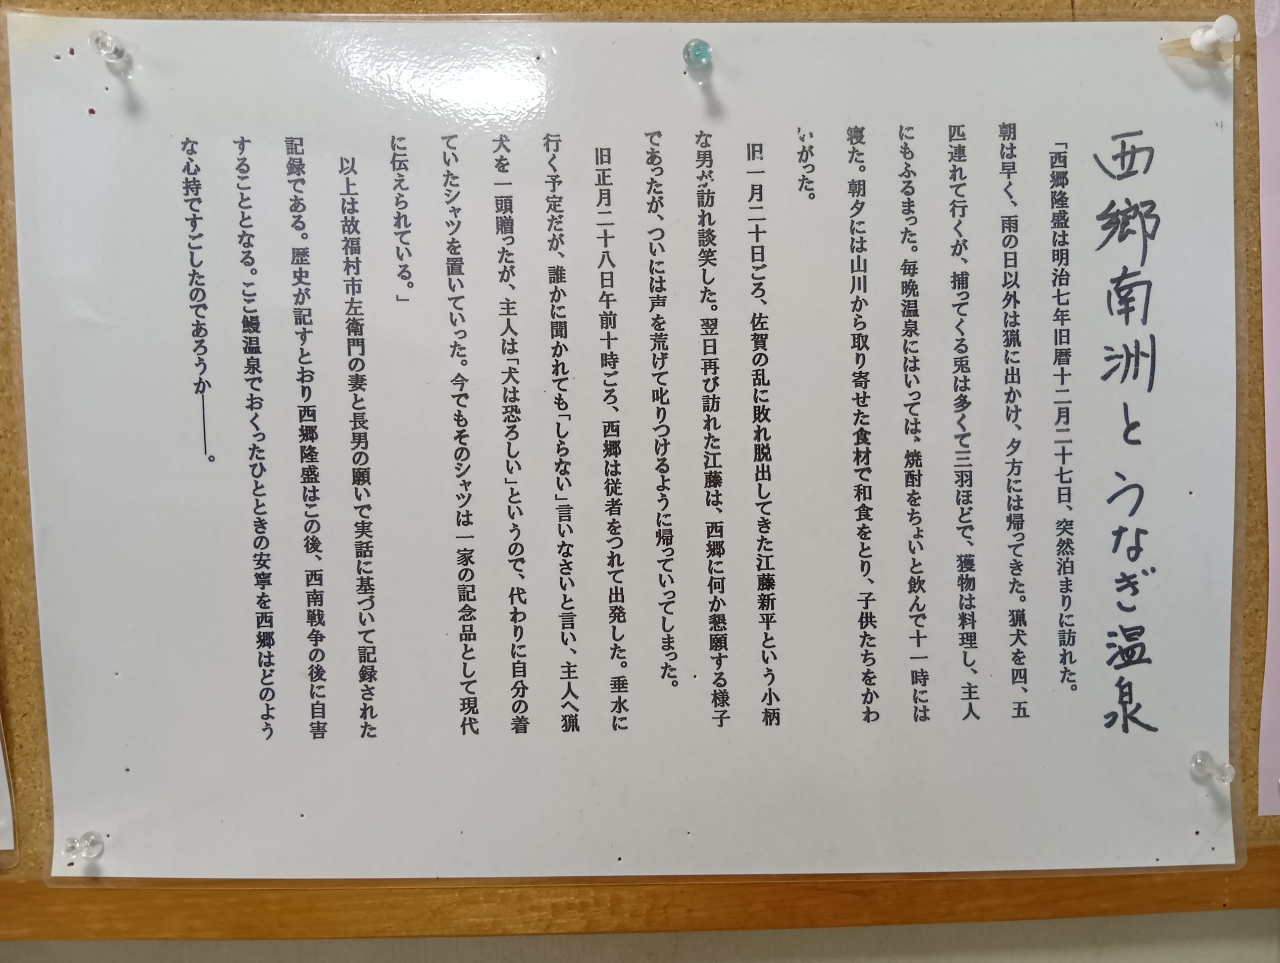 西郷南洲とうなぎ温泉
「西郷隆盛は明治七年旧暦十二月二十七日、突然泊まりに訪れた。
朝は早く、雨の日以外は猟に出かけ、夕方には帰ってきた。猟犬を四、五
匹連れて行くが、捕ってくる兎は多くて三羽ほどで、獲物は料理し、主人
にもふるまった。毎晩温泉にはいっては、焼酎をちょいと飲んで十一時には
寝た。朝夕には山川から取り寄せた食材で和食をとり、子供たちをかわ
いがった。
旧一月二十日ごろ、佐賀の乱に敗れ脱出してきた江藤新平という小柄
な男が訪れ談笑した。翌日再び訪れた江藤は、西郷に何か懇願する様子
であったが、ついには声を荒げて叱りつけるように帰っていってしまった。
旧正月二十八日午前十時ごろ、西郷は従者をつれて出発した。垂水に
行く予定だが、誰かに聞かれても「しらない」言いなさいと言い、主人へ猟
犬を一頭贈ったが、主人は「犬は恐ろしい」というので、代わりに自分の着
ていたシャツを置いていった。今でもそのシャツは一家の記念品として現代
に伝えられている。」
以上は故福村市左衛門の妻と長男の願いで実話に基づいて記録された
記録である。歴史が記すとおり西郷隆盛はこの後、西南戦争の後に自害
することとなる。ここ鰻温泉でおくったひとときの安寧を西郷はどのよう
な心持ですごしたのであろうか――。